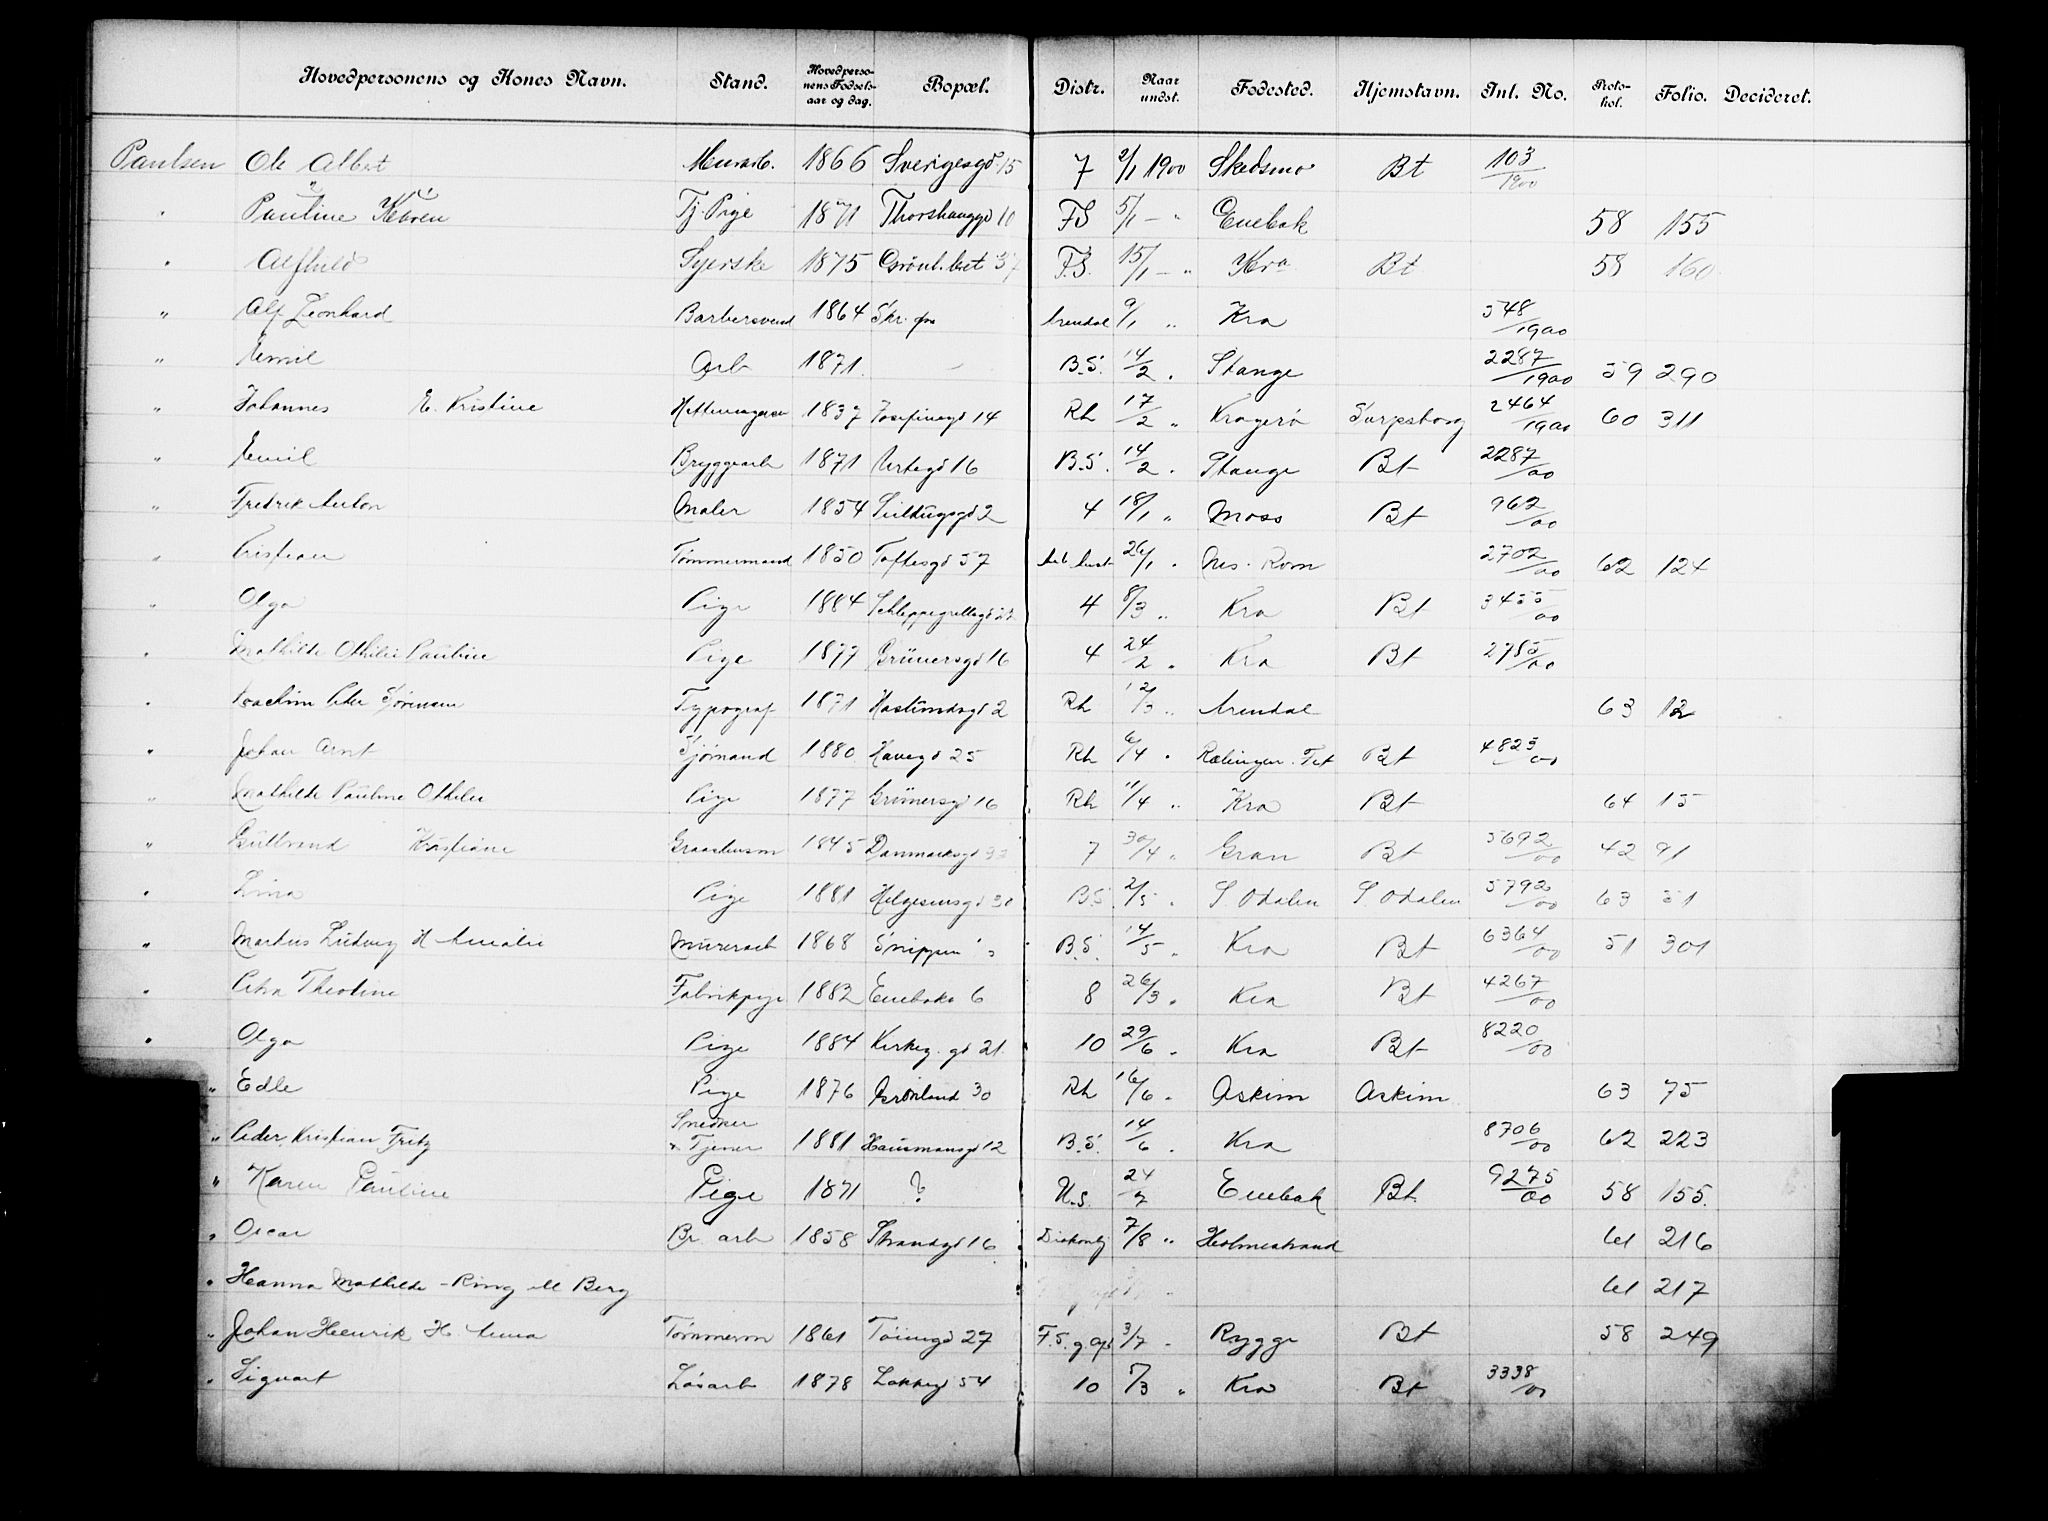 Hovedpersonens og Kones Navn. Stand. Hovedperso- nens Fødsels- aar og dag. Bopæl. Distr. Naar undst. Fødested. Hjemstavn. Inl. No. Proto- kol. Folio. Decideret.
Paulsen Ole Albert Murarb. 1866 Sverigesgd 15 7 2/1 1900 Skedsmo Bt 103/1900
" Pauline Karen Tj. Pige 1871 Thorshauggd 10 FS 5/1 - " Enebak 58 155
" Alfhild Syerske 1875 Grønl. bret 37 F.S. 15/1 - " Kra Bt 58 160
" Alf Leonhard Barbersvend 1864 Arendal 9/1 " Kra 548/1900
" Emil Arb 1871 - B.S. 14/2 " Stange 2287/1900 59 290
" Johannes E. Kristine 1837 Josefinegd 14 Rh 17/2 " Kragerø Sarpsborg 2464/1900 60 311
" Emil Bryggearb 1871 Urtegd 16 B.S. 14/2 " Stange Bt 2287/00
" Fredrik Anton Maler 1854 2 4 18/1 " Moss Bt 962/00
" Kristian Tømmermand 1850 Toftesgd 57 26/1 " Nes. Rom 2702/00 62 124
" Olga Pige 1884 Schleppegrellsgd 22 4 8/3 " Kra Bt 3455/00
" Mathilde Othilie Pauline Pige 1877 Grünersgd 16 4 24/2 " Kra Bt 2785/00
" Joachim Peter Sørensen Typograf 1871 2 Rh 12/3 " Arendal 63 12
" Johan Arnt Sjømand 1880 Havegd 25 Rh 6/4 " Rælingen. Fet Bt 4823/00
" Mathilde Pauline Othilie Pige 1877 Grünersgd 16 Rh 11/4 " Kra Bt 64 15
" Gulbrand Kristiane 1845 Danmarksgd 33 7 30/4 " Gran Bt 5692/00 42 91
" Lina Pige 1881 Helgesensgd 30 B.S. 2/5 " S. Odalen S. Odalen 5792/00 63 51
" Markus Ludvig H Amalie Murerarb 1868 Snippen B.S. 14/5 " Kra Bt 6364/00 51 301
" Petra Theoline Fabrikpige 1882 Enebakv 6 8 26/3 " Kra Bt 4267/00
" Olga Pige 1884 Kirkeg. gd 21 10 29/6 " Kra Bt 8220/00
" Edle Pige 1876 Grønland 30 Rh 16/6 " Askim Askim 63 75
" Peder Kristian Fritz Snedker & Tjener 1881 Hausmansgd 12 B.S. 14/6 " Kra 8706/00 62 223
" Karen Pauline Pige 1871 ? U.S. 24/7 Enebak Bt 9275/00 58 155.
" Oscar Br. arb 1858 Strandgd 16 Diakonhj 7/8 " Holmestrand 61 216
" Hanna Mathilde - Ring ell Berg 61 217
" Johan Henrik H Anna Tømmerm 1861 Tøiengd 27 F.S. g. Aps 3/7 " Rygge Bt 58 249
" Sigvart Løsarb 1878 Lakkegd 54 10 5/3 " Kra Bt 3338/00